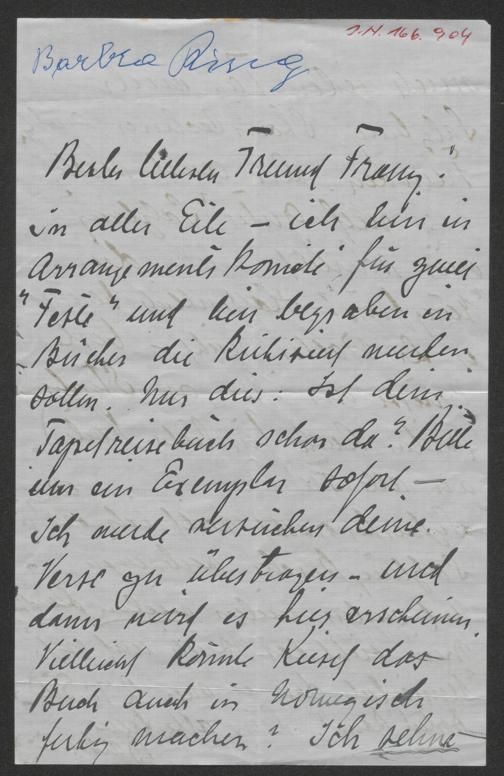 I.N. 166.904
Barbra Ring
Bester liebster Freund Franz!
in aller Eile – ich bin in
Arrangements Komité für zwei
"Feste" und bin begraben in
Bücher die kritisiert werden
sollen. Nur dies: Ist dein
Tapetreisebuch schon da? Bitte
um ein Exemplar sofort –
Ich werde versuchen deine
Verse zu übertragen – und
dann wird es hier erscheinen.
Vielleicht könnte das
Buch auch in Norwegisch
fertig machen? Ich sehne